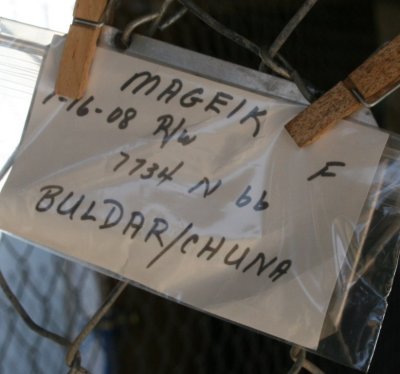 MAGEIK
1-16-08 R/W F
7734 N 66
BULDAR/CHUNA